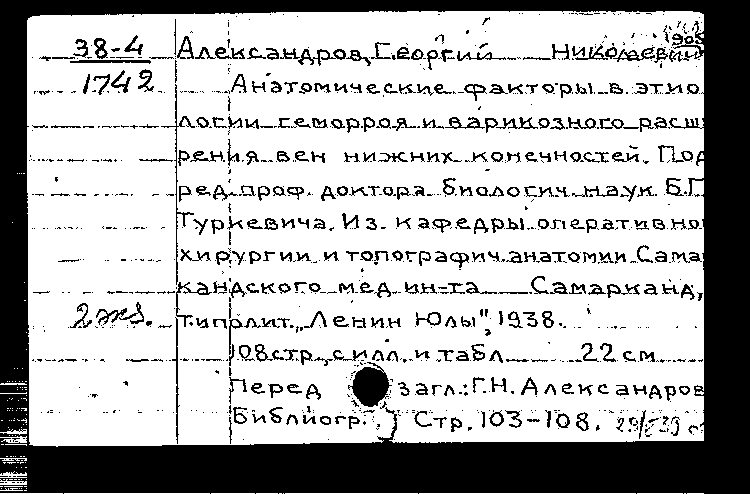 38-4 Александров, Георгий Николаевич
1742 Анатомические факторы в этио
логии геморроя и варикозного расши
рения вен нижних конечностей. Под
ред. проф. доктора биологич. наук Б.П.
Туркевича. Из кафедры оперативно
хирургии и топографич. анатомии Сама
кандского мед. ин-та Самарканд,
2 экз. типолит. „Ленин Юлы", 1938.
108 стр., с илл. и табл. 22 см
Перед загл.: Г.Н. Александров
Библиогр.: Стр. 103-108.